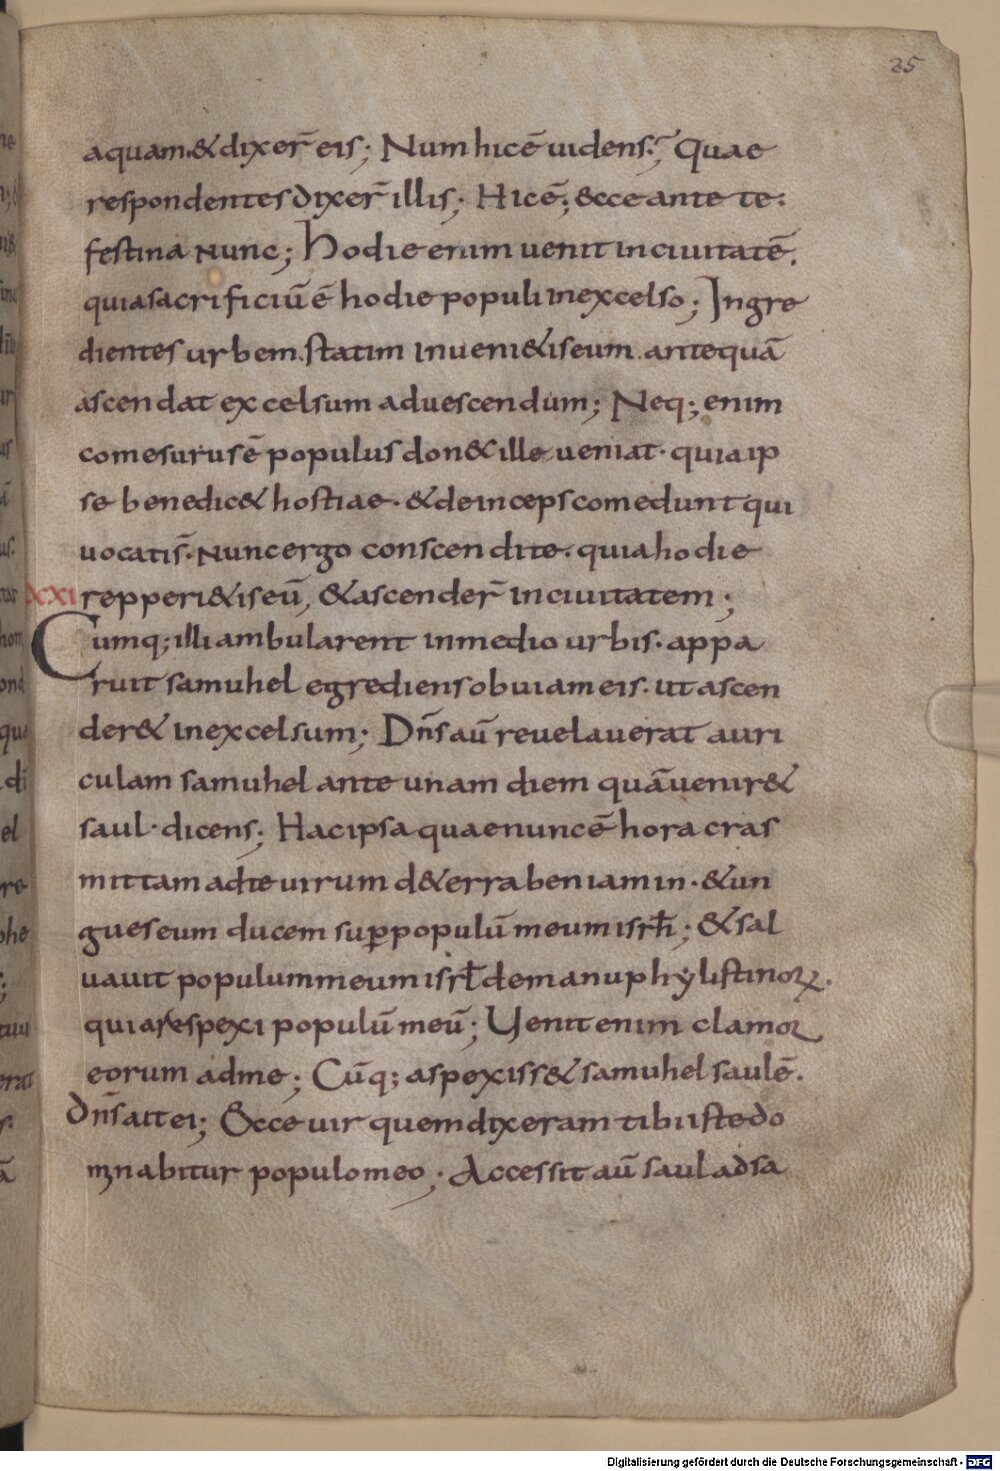 25
aquam. & dixer̄ eis; Num hic ē uidens? Quae
respondentes dixer̄ illis; Hic ē; ecce ante te.
festina nunc; Hodie enim uenit in ciuitatē.
quia sacrificiū ē hodie populi in excelso; Ingre
dientes urbem. statim inueni&is eum. antequā
ascendat excelsum ad uescendum; Neq; enim
comesurus ē populus don& ille ueniat. quia ip
se benedic& hostiae. & deinceps comedunt qui
uocati s̄. nunc ergo conscendite. quia hodie
XXI repperi&is eū, & ascender̄ in ciuitatem;
Cumq; illi ambularent in medio urbis. appa
ruit samuhel egrediens obuiam eis. ut ascen
der& in excelsum; Dn̄s aū reuelauerat auri
culam samuhel ante unam diem quā uenir&
saul. dicens; Hac ipsa quae nunc ē hora cras
mittam ad te uirum de terra beniamin. & un
gues eum ducem sup̱ populū meum isrɫ; & sal
uauit populum meum isrɫ de manu phylistinoꝝ.
quia respexi populū meū; Uenit enim clamor
eorum ad me; Cūq; aspexiss& samuhel saulē.
Dn̄s ait ei; Ecce uir quem dixeram tibi iste do
minabitur populo meo; Accessit aū saul ad sa
Digitalisierung gefördert durch die Deutsche Forschungsgemeinschaft - DFG